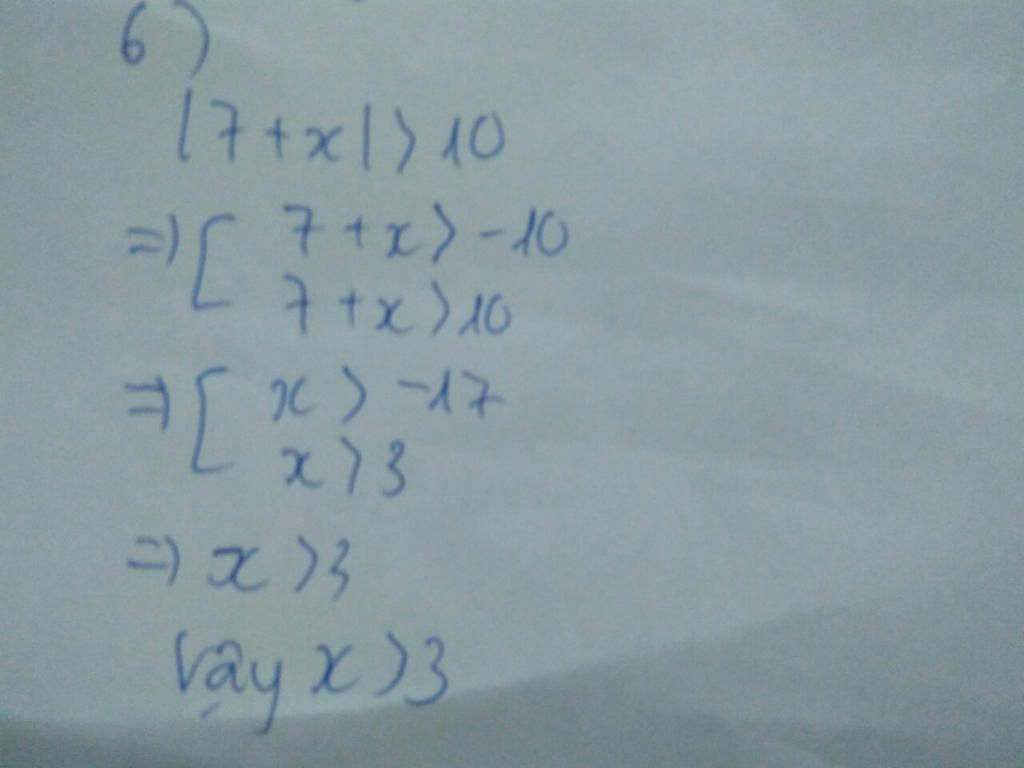 6)
|7+x|>10
=>[ 7+x>-10
7+x>10
=>[ x>-17
x>3
=> x>3
Vậy x>3